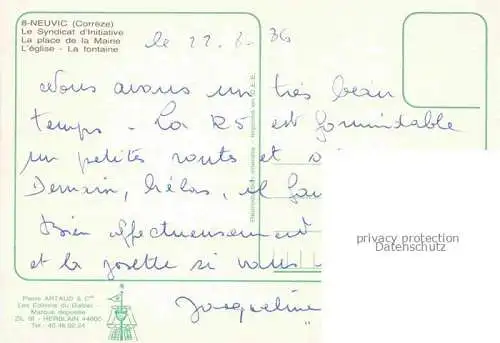 8-NEUVIC (Corrèze)
Le Syndicat d'Initiative
La place de la Mairie
L'église - La fontaine
le
Nous avons un très beau
temps - La R5 est formidable
petites routes et
Demain, hélas, il
Bien affectueusement
et la Josette si vous
Jacqueline
privacy protection
Datenschutz
Pierre ARTAUD & Cie
Les Colonnes du
Marque déposée
ZIL St - HERBLAIN 44800
Tél. - 40 46 02 24